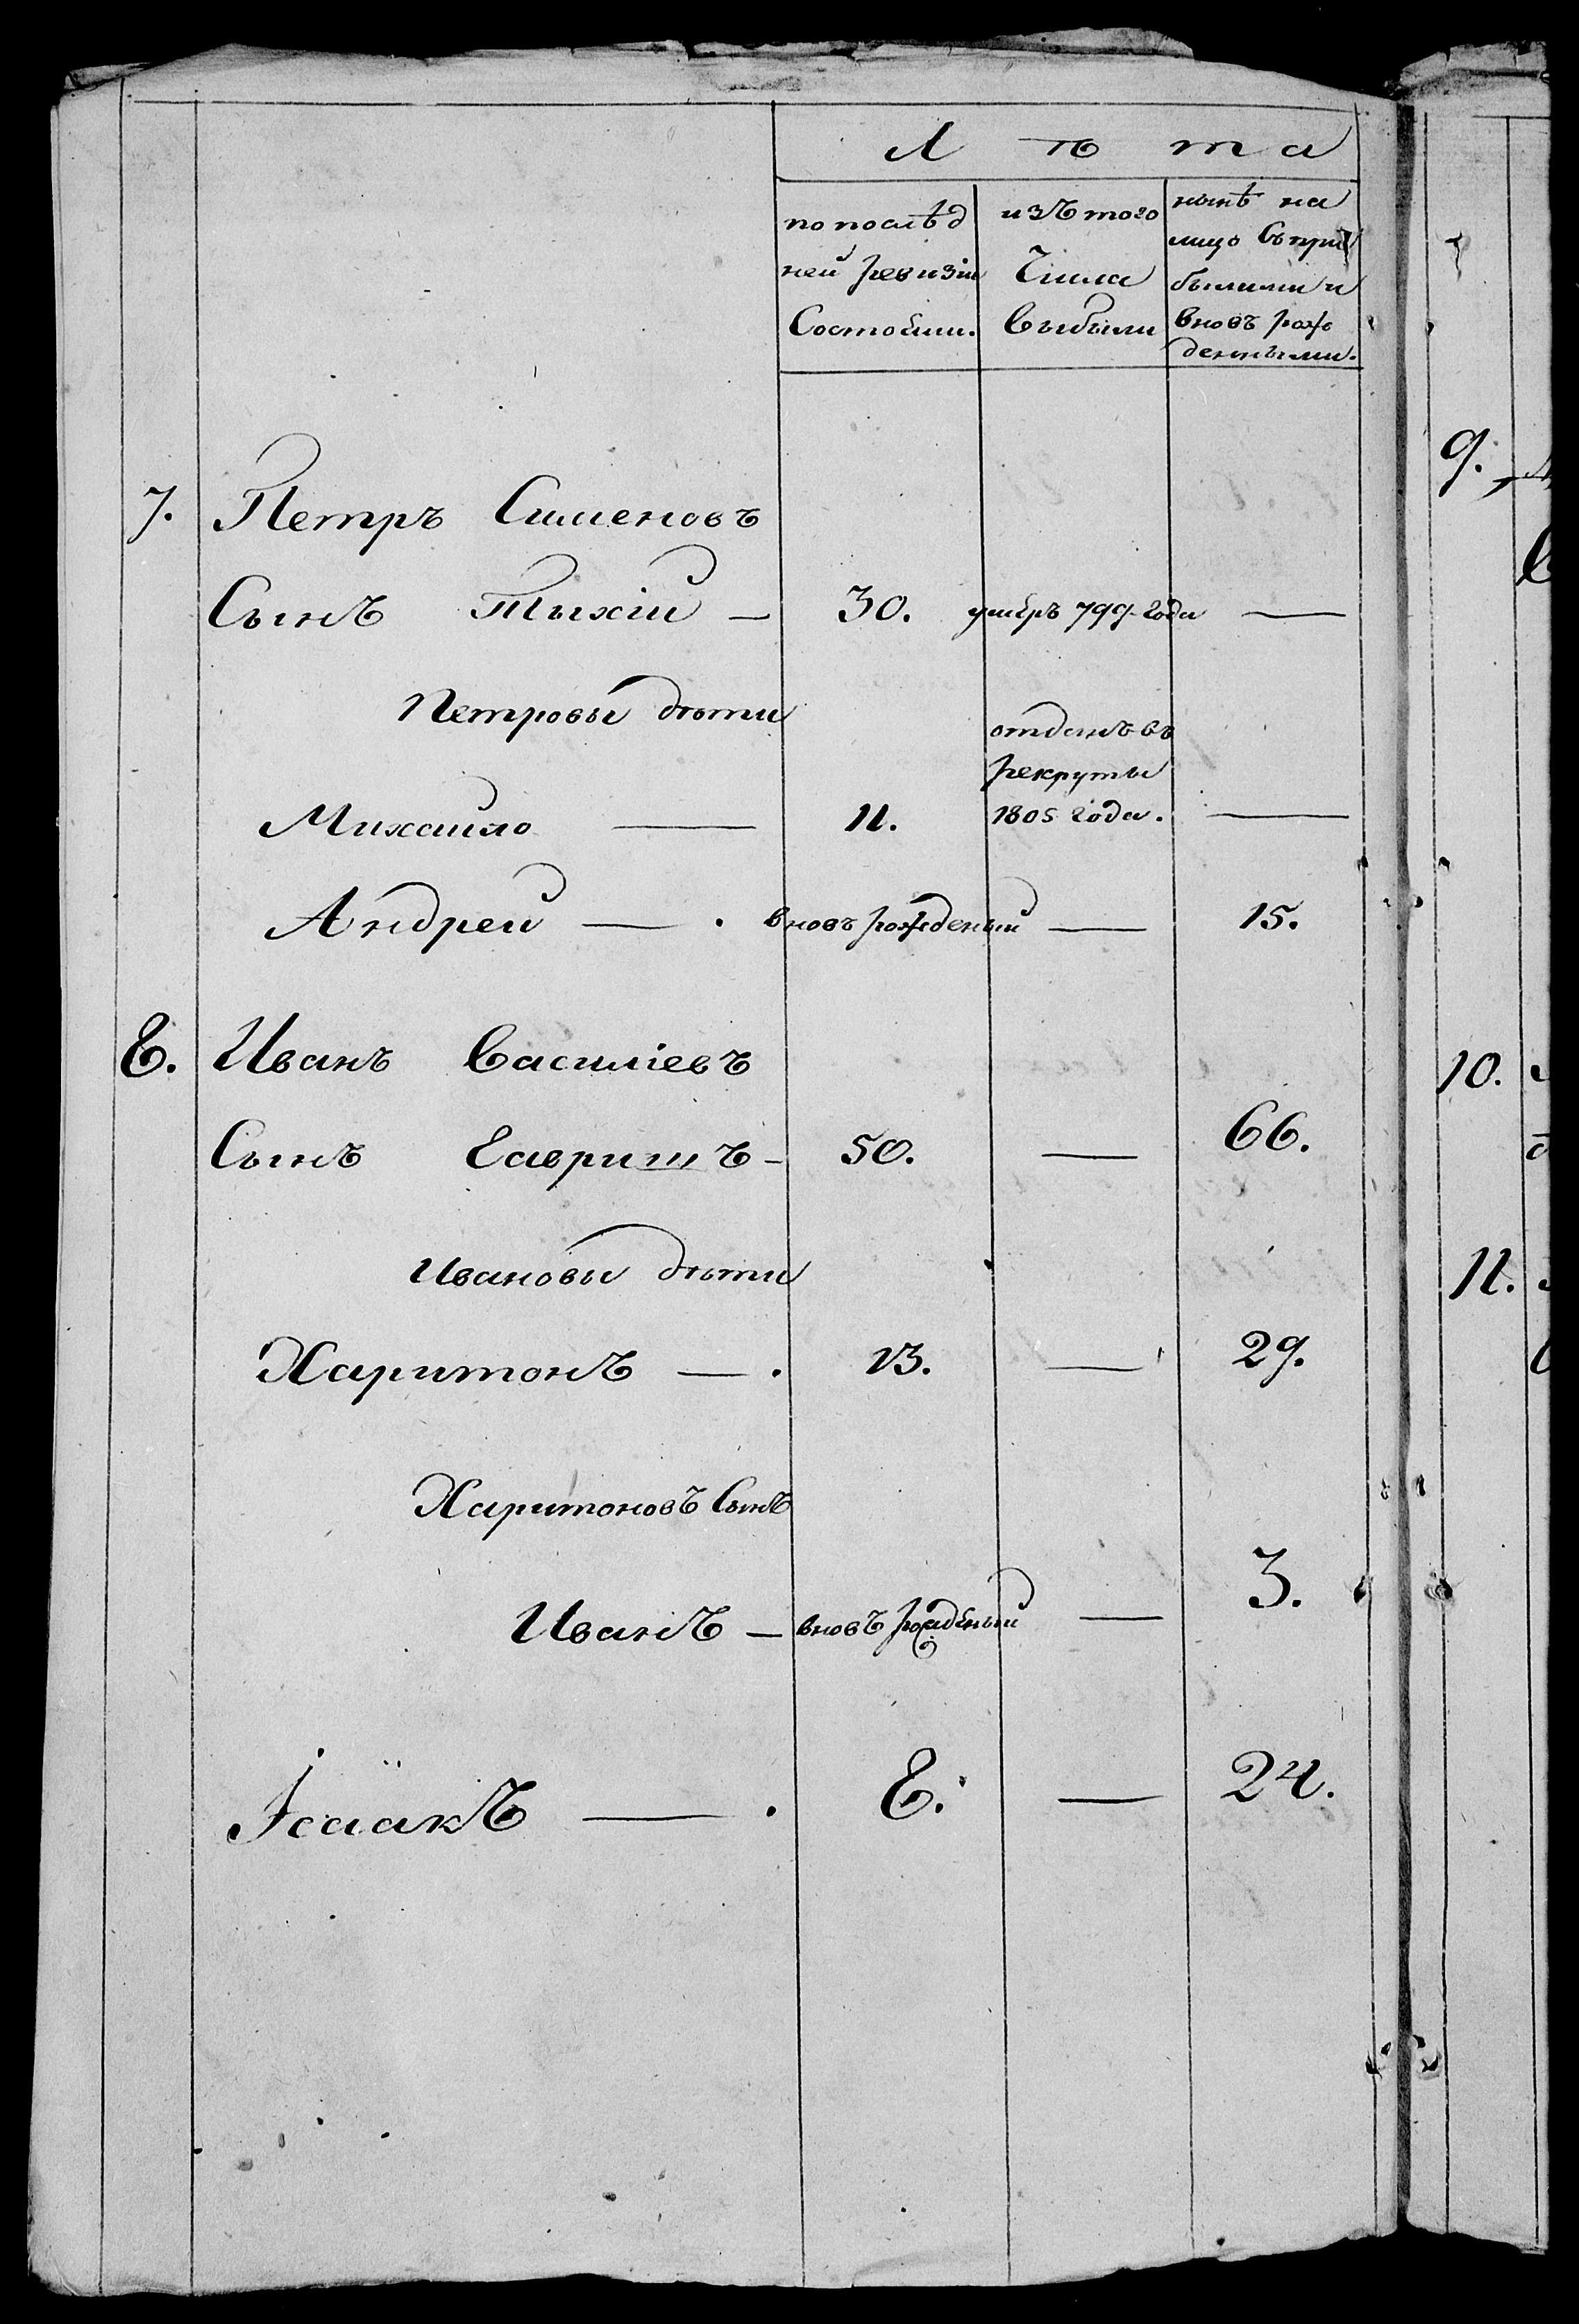 Лѣта
по послѣд
ней ревизіи
Состояли.
изъ того
Числа
выбыли
нынѣ на
лицо съ при
былыми и
вновь рож
денными.
7. Петръ Сименовъ
Сынъ Тыхій — 30. умеръ 799 года —
Петровы дѣти
отданъ въ
рекруты
Михаило — 11. 1805 года. —
Андрей — . вновь рожденый — 15.
8. Иванъ Василіевъ
Сынъ Гавришъ - 50. — 66.
Ивановы дѣти
Харитонъ — . 13. — 29.
Харитоновъ Сынъ
Иванъ — вновъ рожденый — 3.
Ісаакъ — . 8. — 24.
9.
10.
11.